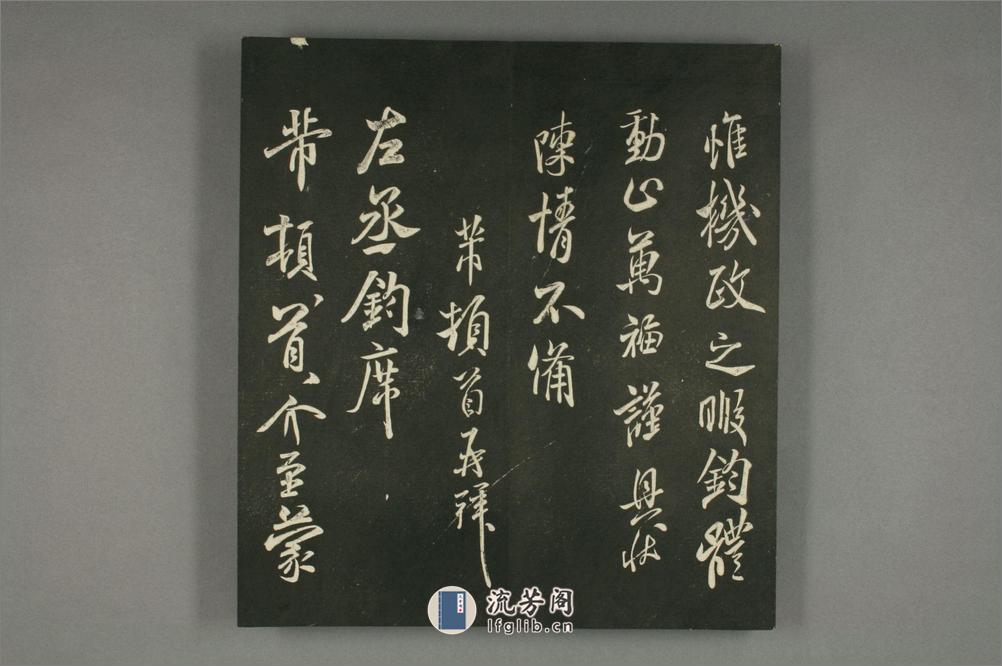 惟機政之暇鈞體
動止萬福謹具狀
陳情不備
芾頓首再拜
左丞鈞席
芾頓首介至蒙
流芳阁
lfglib.cn